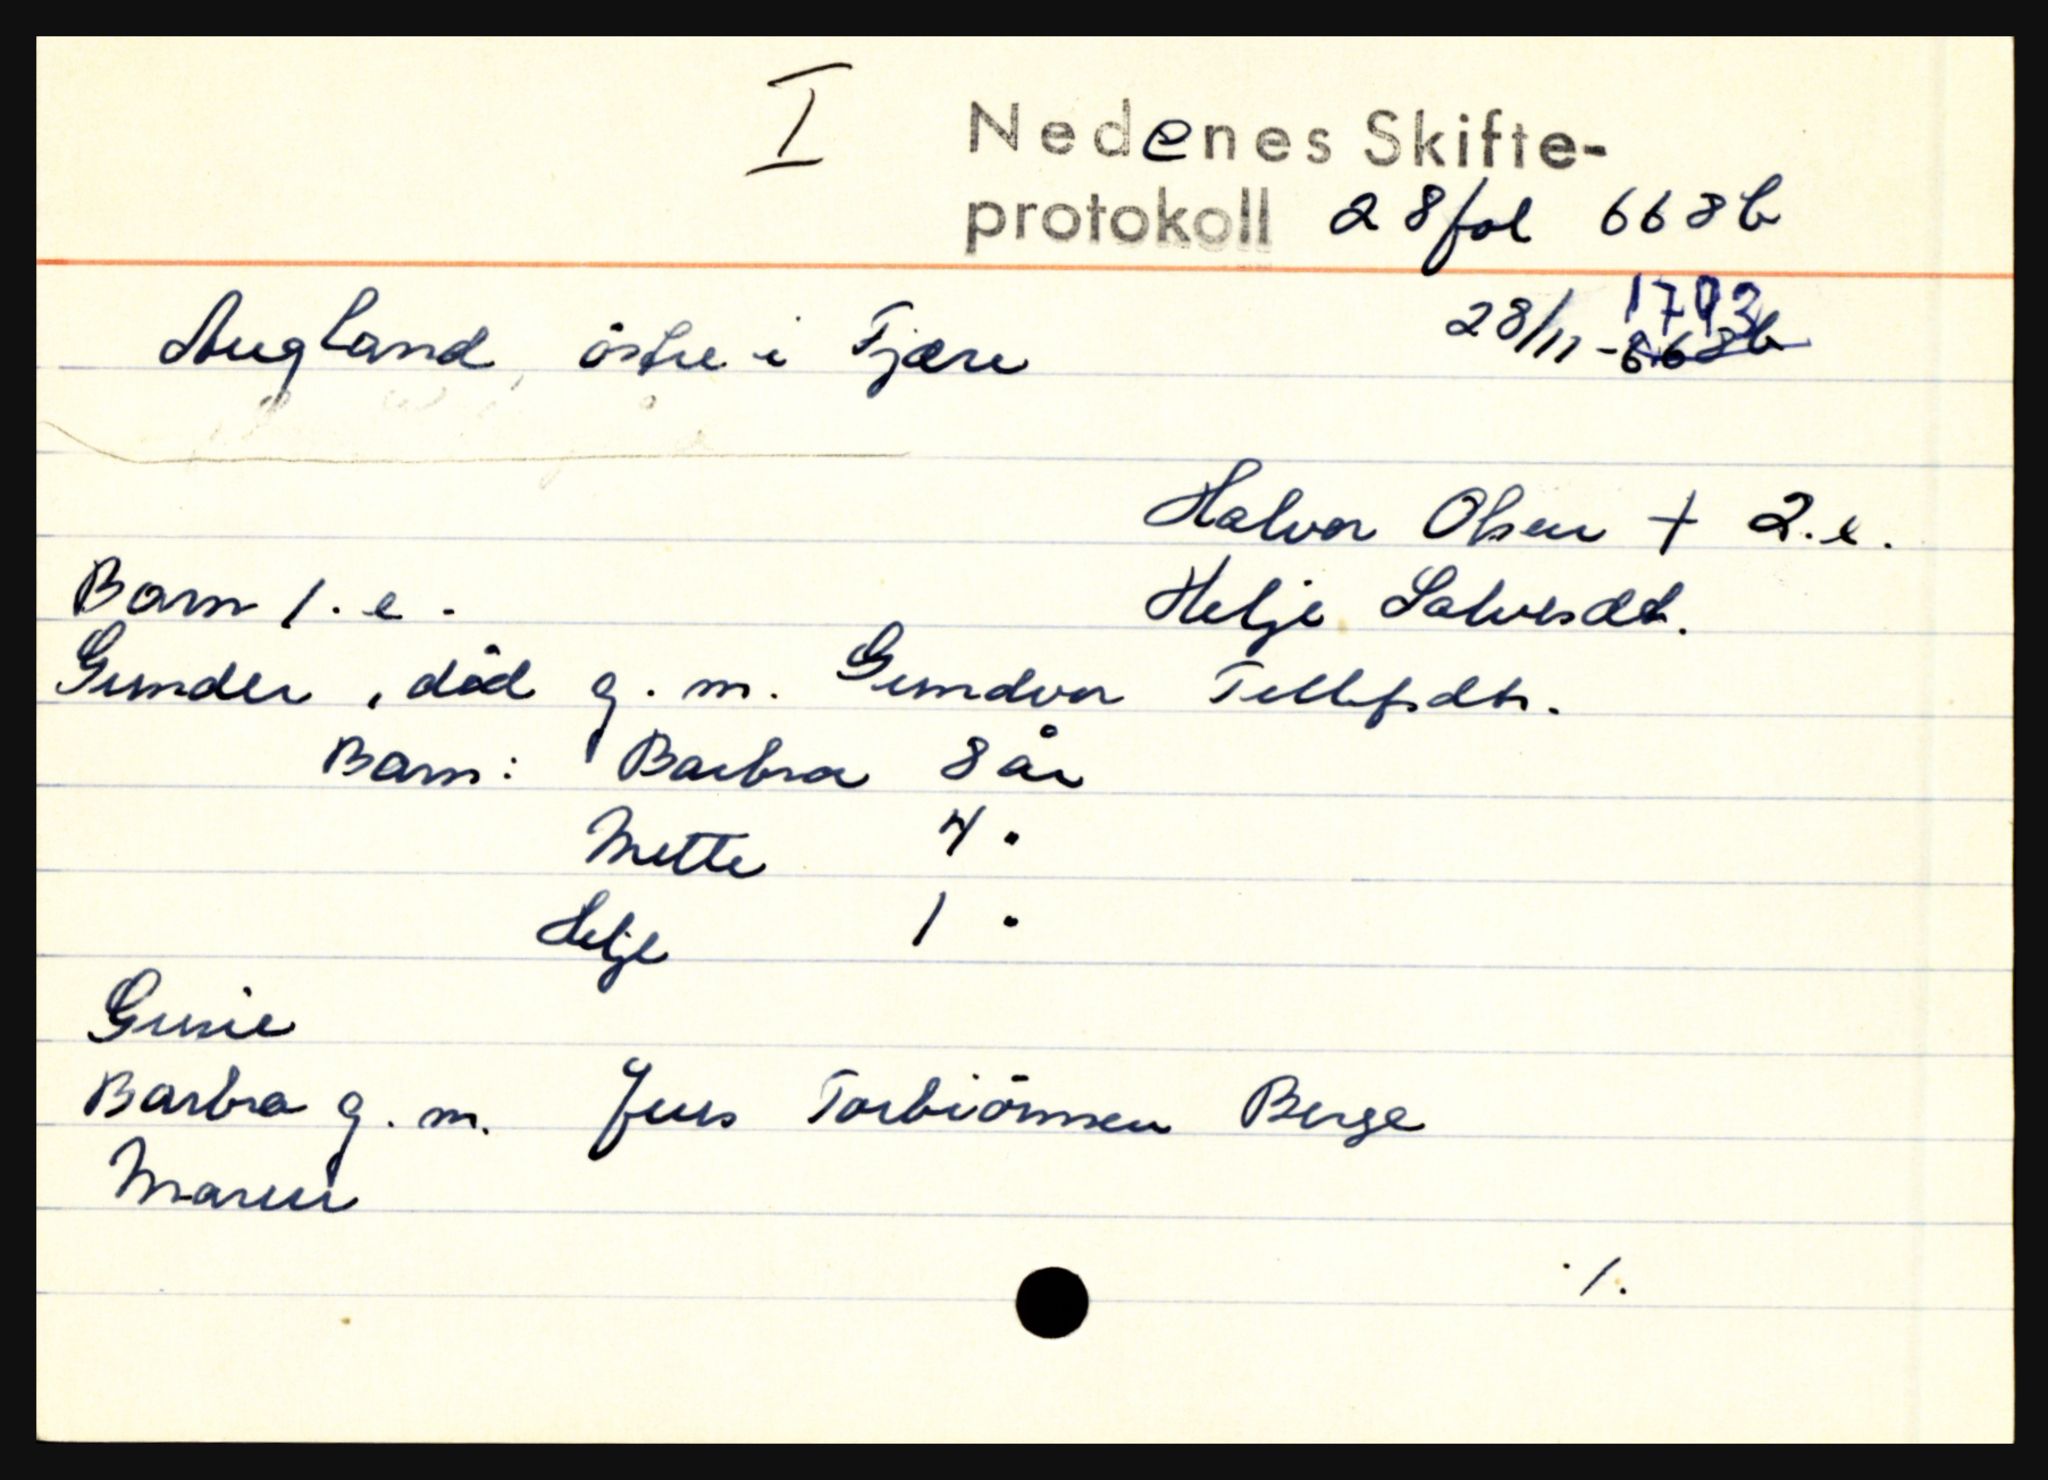 I Nedenes Skifte-
protokoll 28 fol 668b
Augland, östre i Fjære 28/11 - 1793 668b
Halvor Olsen + 2. e.
Barn 1. e. Helje Salvesdt.
Gunder, död g. m. Gundvor Tellefsdtr.
Barn: Barbra 8 år
Mette 4 "
Helje 1 "
Gunie
Barbra g. m. Jens Torbiörnsen Berge
Maren
./.